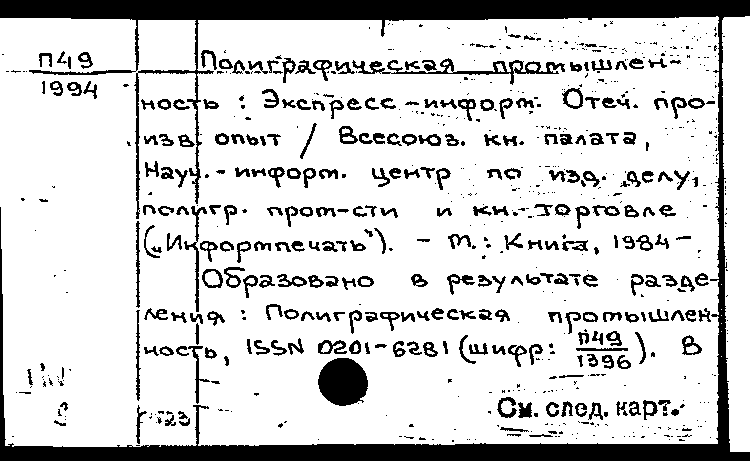 П49
1994
Полиграфическая промышлен-
ность : Экспресс-информ. Отеч. про-
изв. опыт / Всесоюз. кн. палата,
Науч.-информ. центр по изд. делу,
полигр. пром-сти и кн. торговле
(„Информпечать"). - М.: Книга, 1984 -
Образовано в результате разде-
ления : Полиграфическая промышлен-
ность, ISSN 0201-6281 (шифр: П49
1396). В
См. след. карт.